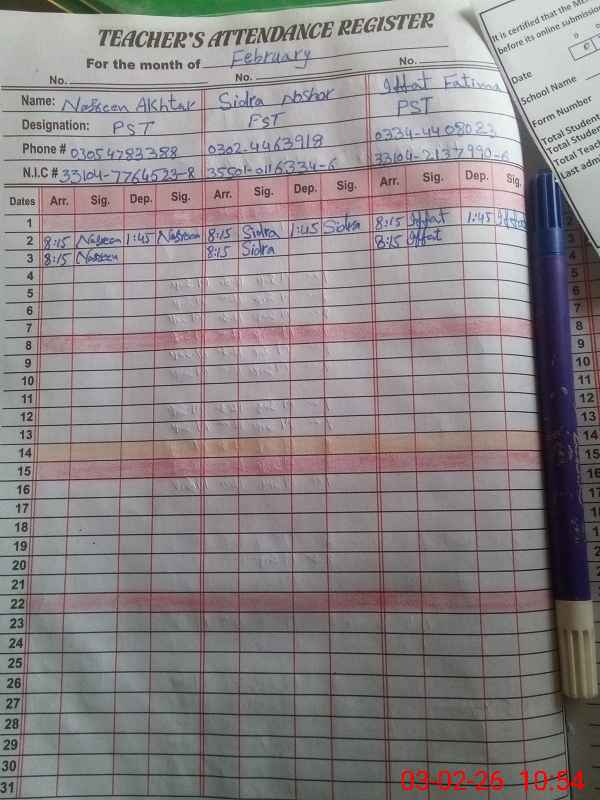 TEACHER'S ATTENDANCE REGISTER
For the month of February
No. No. No.
Name: Nasreen Akhtar Sidra Noshor Iffat Fatima
Designation: PST PST PST
Phone # 03054783388 0302-4463918 0334-4408082
N.I.C # 33104-7764523-8 35501-0116334-6 33104-2137990-6
Dates Arr. Sig. Dep. Sig. Arr. Sig. Dep. Sig. Arr. Sig. Dep. Sig.
1
2 8:15 Nasreen 1:45 Nasreen 8:15 Sidra 1:45 Sidra 8:15 Iffat 1:45 Iffat
3 8:15 Nasreen 8:15 Sidra 8:15 Iffat
4
5
6
7
8
9
10
11
12
13
14
15
16
17
18
19
20
21
22
23
24
25
26
27
28
29
30
31
It is certified that the
before its online submission
Date
School Name
Form Number
Total Student
Total Student
Total Teac
Last admi
7
8
9
10
11
12
13
14
15
16
17
18
19
20
21
22
23
24
25
26
27
28
29
30
31
03-02-26 10:54